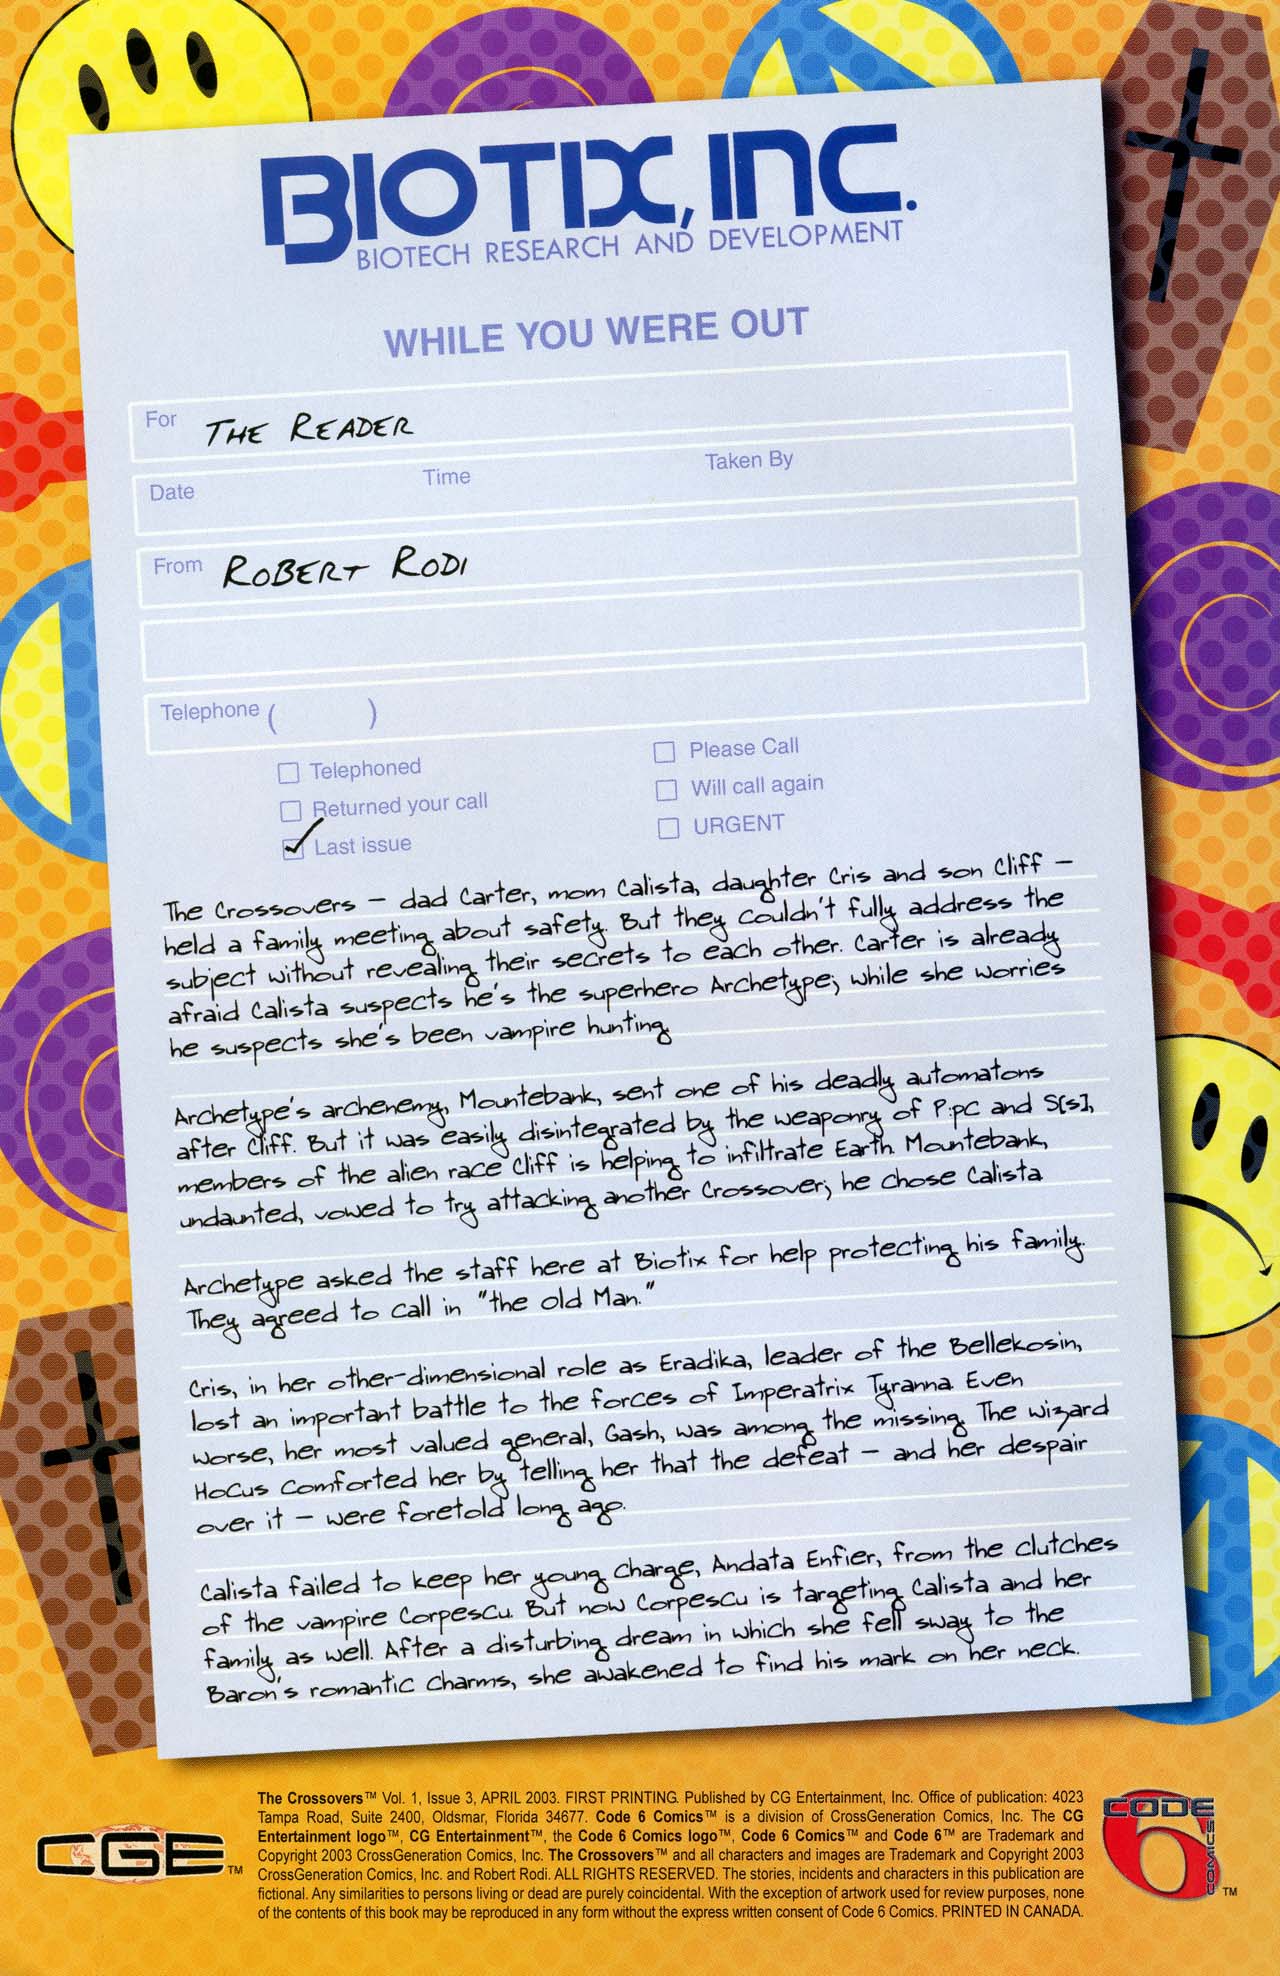 BIOTIX, INC.
BIOTECH RESEARCH AND DEVELOPMENT
WHILE YOU WERE OUT
For THE READER
Date Time Taken By
From ROBERT RODI
Telephone ( )
Telephoned
Returned your call
Last issue
Please Call
Will call again
URGENT
The Crossovers – dad Carter, mom Calista, daughter Cris and son Cliff –
held a family meeting about safety. But they couldn't fully address the
subject without revealing their secrets to each other. Carter is already
afraid Calista suspects he's the superhero Archetype; while she worries
he suspects she's been vampire hunting.
Archetype's archenemy, Mountebank, sent one of his deadly automatons
after Cliff. But it was easily disintegrated by the weaponry of P:pC and S[s],
members of the alien race Cliff is helping to infiltrate Earth. Mountebank,
undaunted, vowed to try attacking another Crossover; he chose Calista.
Archetype asked the staff here at Biotix for help protecting his family.
They agreed to call in "the old Man."
Cris, in her other-dimensional role as Eradika, leader of the Bellekosin,
lost an important battle to the forces of Imperatrix Tyranna. Even
worse, her most valued general, Gash, was among the missing. The wizard
Hocus comforted her by telling her that the defeat – and her despair
over it – were foretold long ago.
Calista failed to keep her young charge, Andata Enfier, from the clutches
of the vampire Corpescu. But now Corpescu is targeting Calista and her
family as well. After a disturbing dream in which she fell sway to the
Baron's romantic charms, she awakened to find his mark on her neck.
The Crossovers™ Vol. 1, Issue 3, APRIL 2003. FIRST PRINTING. Published by CG Entertainment, Inc. Office of publication: 4023
Tampa Road, Suite 2400, Oldsmar, Florida 34677. Code 6 Comics™ is a division of CrossGeneration Comics, Inc. The CG
Entertainment logo™, CG Entertainment™, the Code 6 Comics logo™, Code 6 Comics™ and Code 6™ are Trademark and
Copyright 2003 CrossGeneration Comics, Inc. The Crossovers™ and all characters and images are Trademark and Copyright 2003
CrossGeneration Comics, Inc. and Robert Rodi. ALL RIGHTS RESERVED. The stories, incidents and characters in this publication are
fictional. Any similarities to persons living or dead are purely coincidental. With the exception of artwork used for review purposes, none
of the contents of this book may be reproduced in any form without the express written consent of Code 6 Comics. PRINTED IN CANADA.
CGE™
CODE 6 COMICS™